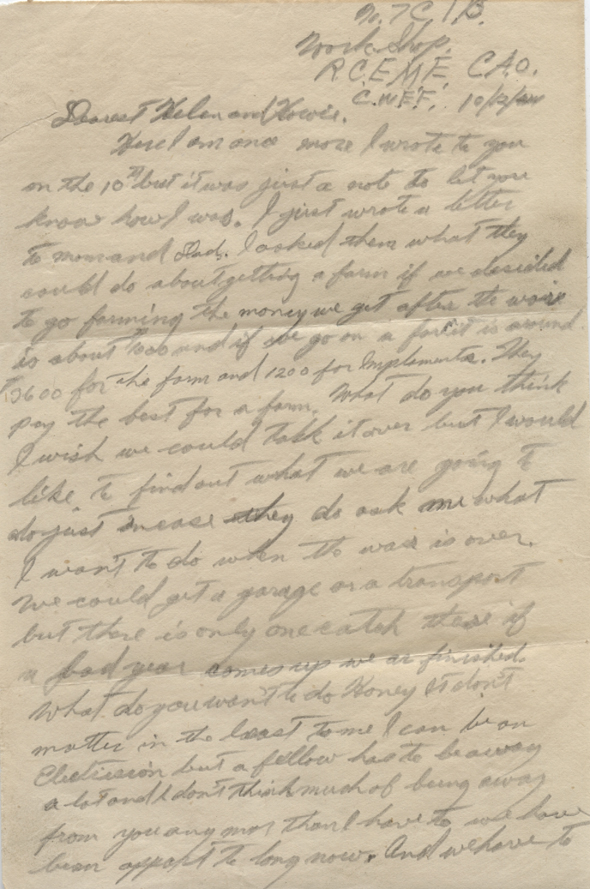 No. 7 C.I.B.
Work Shop.
R.C.E.M.E. C.A.O.
C.M.F.F. 10/2/44
Dearest Helen and Howie.
Here I am once more I wrote to you
on the 10th but it was just a note to let you
know how I was. I just wrote a letter
to mom and Dad. I asked them what they
could do about getting a farm if we decided
to go farming the money we get after the waire
is about 1000 and if we go on a far it is around
3600 for the farm and 1200 for Implements. They
pay the best for a farm. What do you think
I wish we could talk it over but I would
like to find out what we are going to
do just incase they do ask me what
I want to do when the waire is over.
We could get a garage or a transport
but there is only one catch there if
a bad year comes up we are finished.
What do you want to do Honey It don't
matter in the least to me I can be an
Electission but a fellow has to be away
a lot and I don't think much of being away
from you any mor than I have to we have
bean appart to long now. And we have to